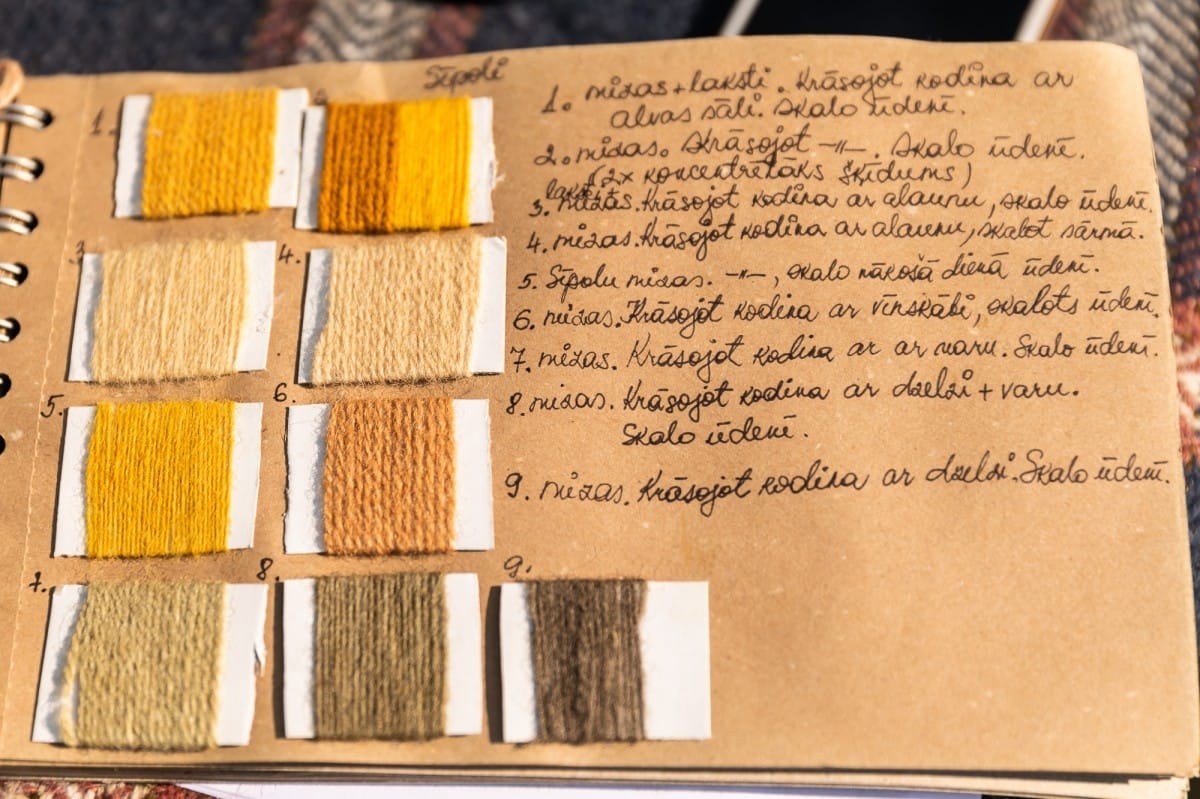 Sīpoli
1. mizas + laksti. Krāsojot kodina ar
alvas sāli. Skalo ūdenī.
2. mizas. Krāsojot -"-. Skalo ūdenī.
(2x koncentrētāks šķīdums)
laksti
3. mizas. Krāsojot kodina ar alaunu, skalo ūdenī.
4. mizas. Krāsojot kodina ar alaunu, skalot sārmā.
5. Sīpolu mizas. -"-, skalo nākošā dienā ūdenī.
6. mizas. Krāsojot kodina ar vīnskābi, skalots ūdenī.
7. mizas. Krāsojot kodina ar ar varu. Skalo ūdenī.
8. mizas. Krāsojot kodina ar dzelzi + varu.
Skalo ūdenī.
9. mizas. Krāsojot kodina ar dzelzi. Skalo ūdenī.
1.
3.
4.
5.
6.
7.
8.
9.